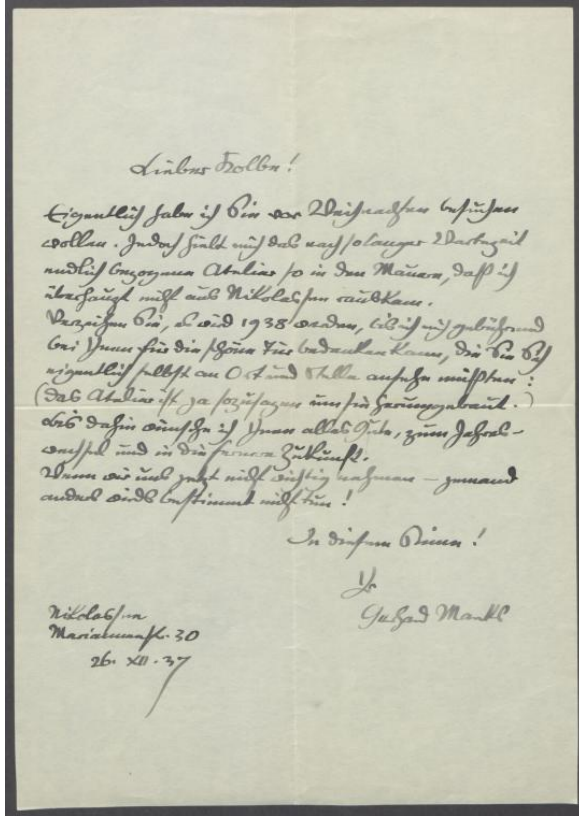 Lieber Kolbe!
Eigentlich habe ich Sie vor Weihnachten besuchen
wollen. Jedoch hielt mich das nach so langer Wartezeit
endlich bezogene Atelier so in den Mauern, daß ich
überhaupt nicht aus Nikolassee rauskam.
Verzeihen Sie, es wird 1938 werden, bis ich mich gebührend
bei Ihnen für die schöne Tür bedanken kann, die Sie Sich
eigentlich selbst an Ort und Stelle ansehn müßten:
(das Atelier ist ja sozusagen um sie herumgebaut.)
Bis dahin wünsche ich Ihnen alles Gute, zum Jahres-
wechsel und in die fernere Zukunft.
Wenn wir uns jetzt nicht wichtig nehmen – jemand
anders wirds bestimmt nicht tun!
In diesem Sinne!
Ihr
Gerhard Marcks
Nikolassee
Mariannenstr. 30
26. XII. 37